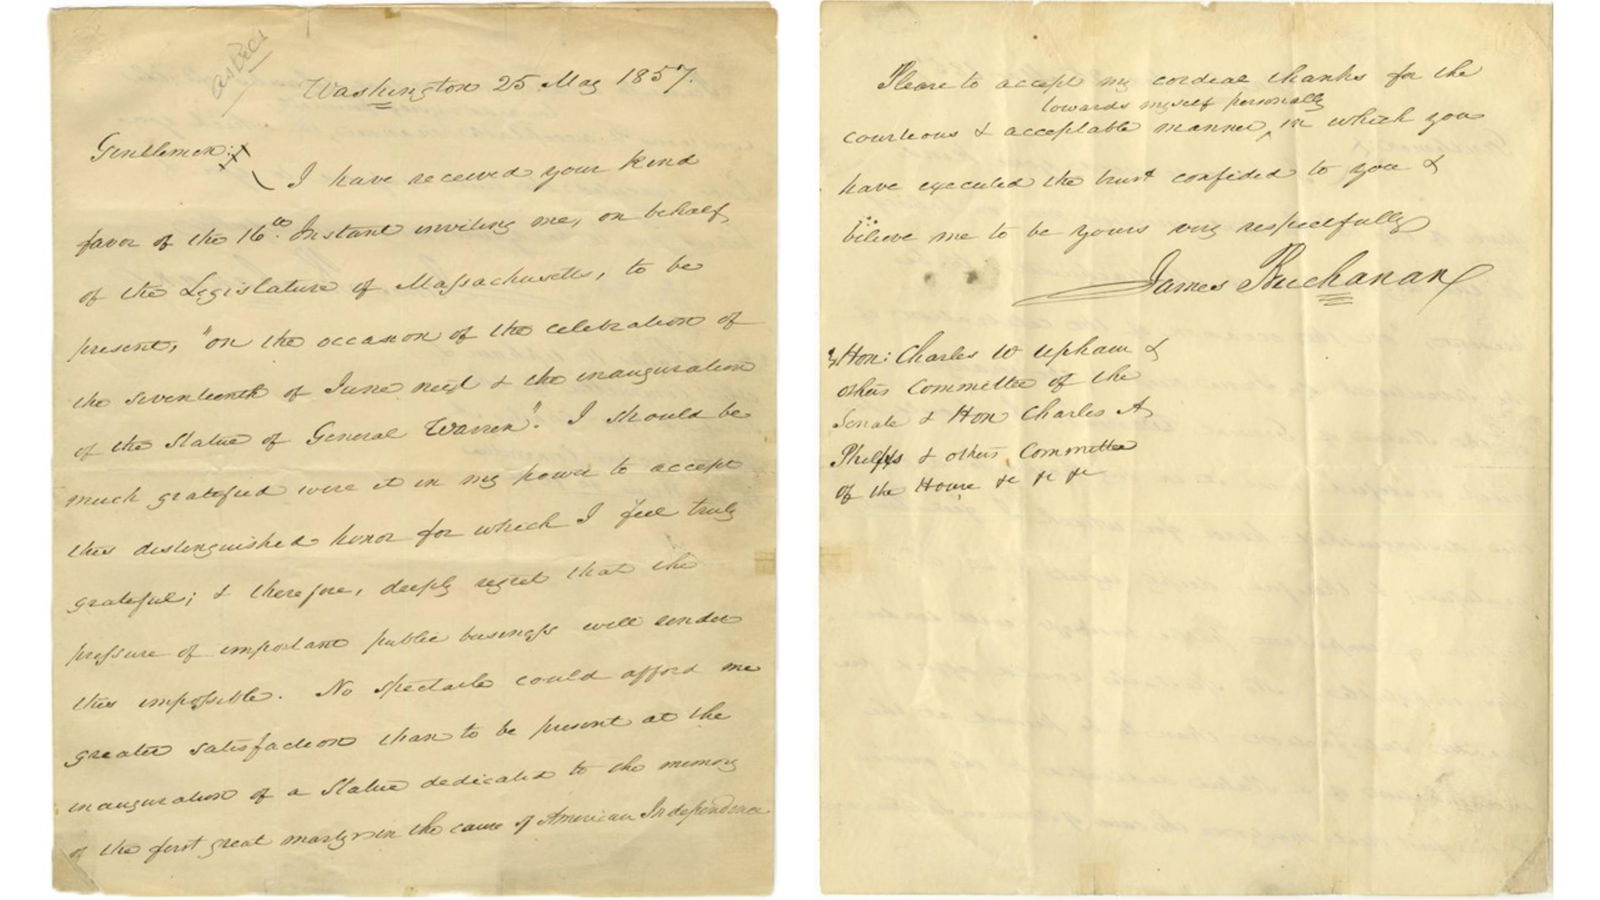 Washington 25 May 1857.
Gentlemen:
I have received your kind
favor of the 16th Instant inviting me, on behalf
of the Legislature of Massachusetts, to be
present, "on the occasion of the celebration of
the seventeenth of June next & the inauguration
of the Statue of General Warren". I should be
much gratified were it in my power to accept
this distinguished honor for which I feel truly
grateful; & therefore, deeply regret that the
pressure of important public business will render
this impossible. No spectacle could afford me
greater satisfaction than to be present at the
inauguration of a Statue dedicated to the memory
of the first great martyr in the cause of American Independence.
Please to accept my cordial thanks for the
towards myself personally
courteous & acceptable manner, in which you
have executed the trust confided to you &
believe me to be yours very respectfully
James Buchanan
Hon: Charles W Upham &
others Committee of the
Senate & Hon Charles A
Phelps & others Committee
of the House &c &c &c